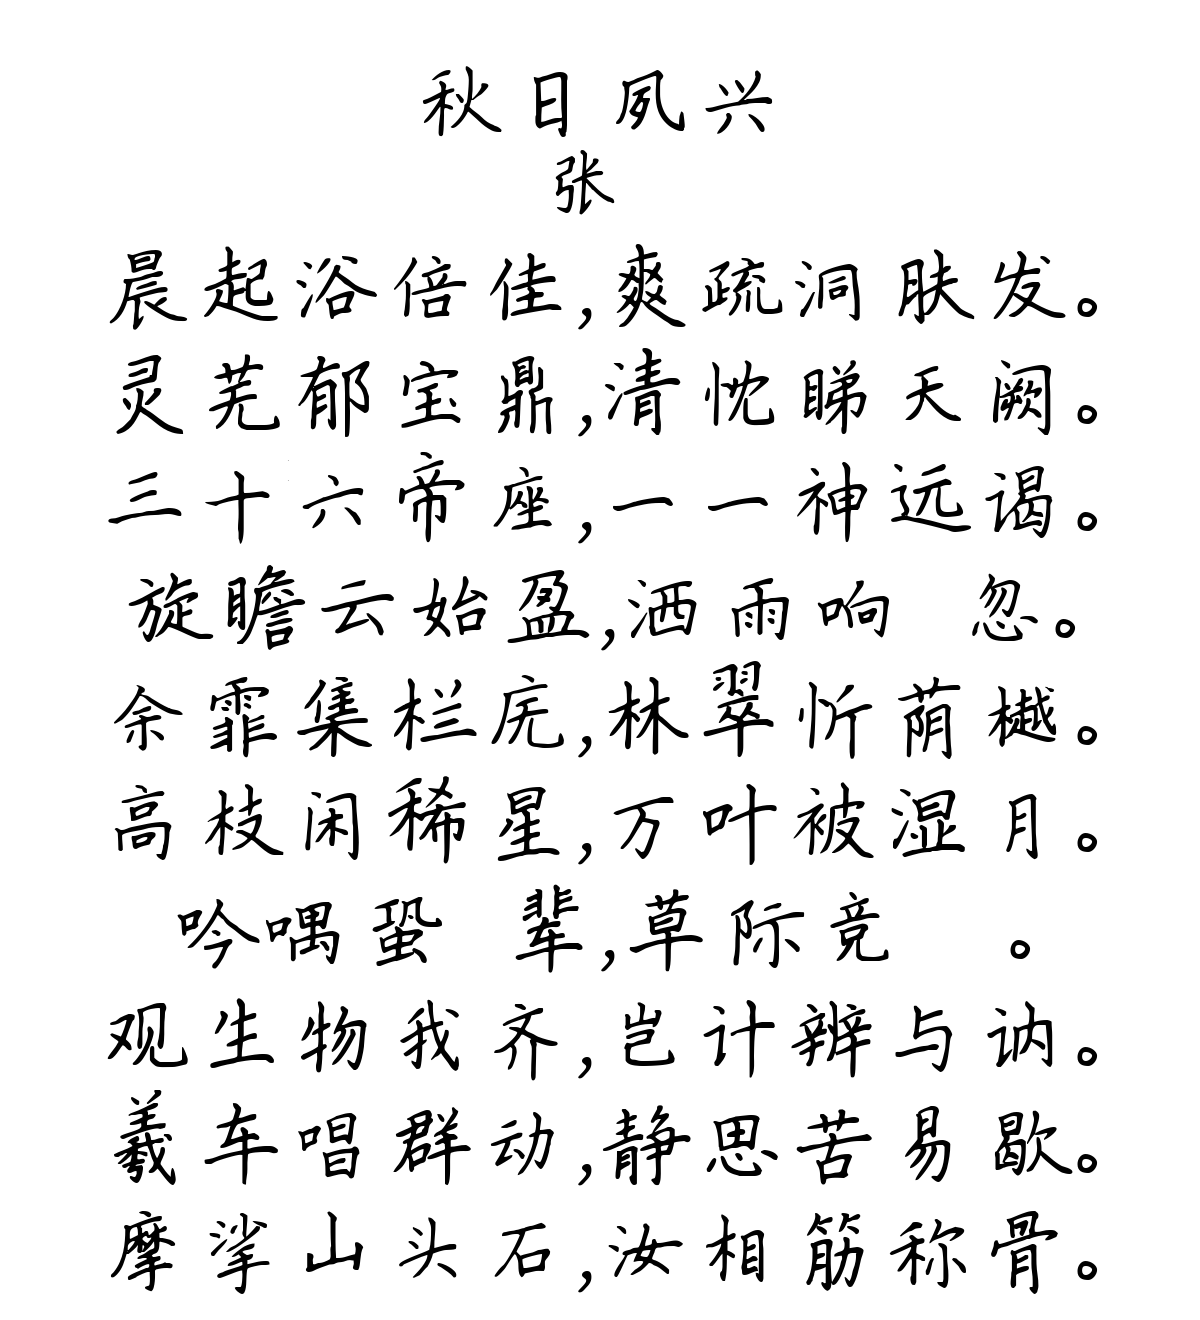 秋日夙兴
张
晨起浴倍佳,爽疏洞肤发。
灵芜郁宝鼎,清忱睇天阙。
三十六帝座,一一神远谒。
旋瞻云始盈,洒雨响 忽。
余霏集栏庑,林翠忻荫樾。
高枝闲稀星,万叶被湿月。
吟喁蛩 辈,草际竞 。
观生物我齐,岂计辨与讷。
羲车唱群动,静思苦易歇。
摩挲山头石,汝相筋称骨。